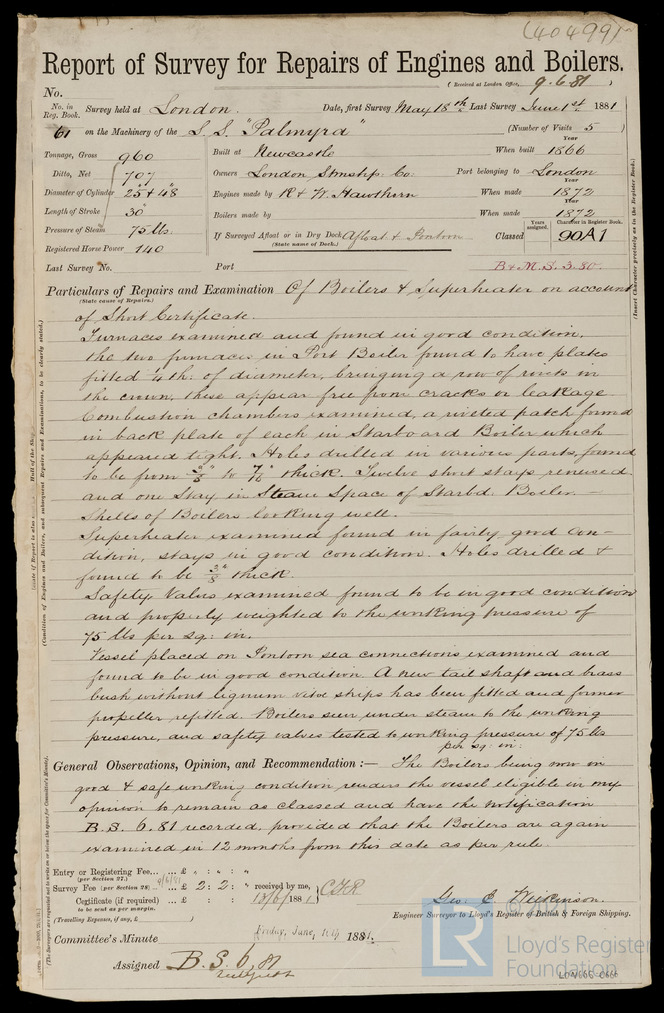 (40499)
Report of Survey for Repairs of Engines and Boilers.
(Received at London Office, 9.6.81
No.
No. in Reg. Book. Survey held at London. Date, first Survey May 18th Last Survey June 1st 1881
61 on the Machinery of the S.S. "Palmyra" (Number of Visits 5)
Tonnage, Gross 960 Built at Newcastle When built Year 1866
Ditto, Net 707 Owners London Stmship Co: Port belonging to London
Diameter of Cylinder 25 & 48" Engines made by R & W. Hawthorn When made Year 1872
Length of Stroke 30" Boilers made by When made Year 1872
Pressure of Steam 75 lbs. If Surveyed Afloat or in Dry Dock Afloat & Pontoon Classed Years assigned. Character in Register Book. 90A1
(State name of Dock.)
Registered Horse Power 140
Last Survey No. Port B&M.S. 3.80.
Particulars of Repairs and Examination Of Boilers & Superheater on account
(State cause of Repairs.)
of Short Certificate.
Furnaces examined and found in good condition,
the two furnaces in Port Boiler found to have plates
fitted 4th: of diameter, bringing a row of rivets in
the crown, these appear free from cracks or leakage.
Combustion chambers examined, a riveted patch found
in back plate of each in Starboard Boiler which
appeared tight. Holes drilled in various parts, found
to be from 3/8" to 7/16" thick. Twelve short stays renewed
and one Stay in Steam Space of Starbd: Boiler. –
Shells of Boilers looking well.
Superheater examined found in fairly good con-
dition, stays in good condition. Holes drilled &
found to be 3/8" thick.
Safety Valves examined found to be in good condition
and properly weighted to the working pressure of
75 lbs per sq: in.
Vessel placed on Pontoon sea connections examined and
found to be in good condition. A new tail shaft and brass
bush without lignum vitæ strips has been fitted and former
propeller refitted. Boilers seen under steam to the working
pressure, and safety valves tested to working pressure of 75 lbs
per sq: in:
General Observations, Opinion, and Recommendation :— The Boilers being now in
good & safe working condition renders the vessel eligible in my
opinion to remain as classed and have the notification
B.S. 6.81 recorded, provided that the Boilers are again
examined in 12 months from this date as per rule.
Entry or Registering Fee... ... £ " : " : "
(per Section 27.)
Survey Fee (per Section 28) 9/6/81 ... £ 2 : 2 : " received by me,
Certificate (if required) ... £ : : 1881
to be sent as per margin.
(Travelling Expenses, if any, £ )
Geo: E. Wilkinson.
Engineer Surveyor to Lloyd's Register of British & Foreign Shipping.
Committee's Minute Friday, June, 10th 1881.
Assigned B.S. 6.81
(Insert Character precisely as in the Register Book.)
(Condition of Engines and Boilers, and subsequent Repairs and Examinations, to be clearly stated.)
(The Surveyors are requested not to write on or below the space for Committee's Minute.)
LR
© 2021
Lloyd's Register
Foundation